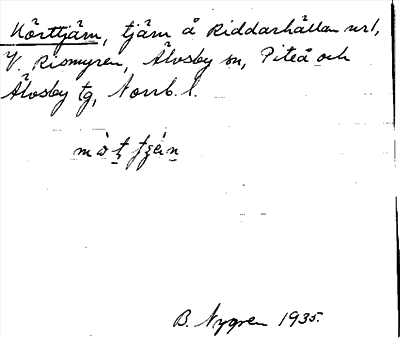 Mörttjärn, tjärn å Riddarhällan url,
V. Rismyren, Älvsby sn, Piteå och
Älvsby tg, Norrb. l.
B. Nygren 1935.